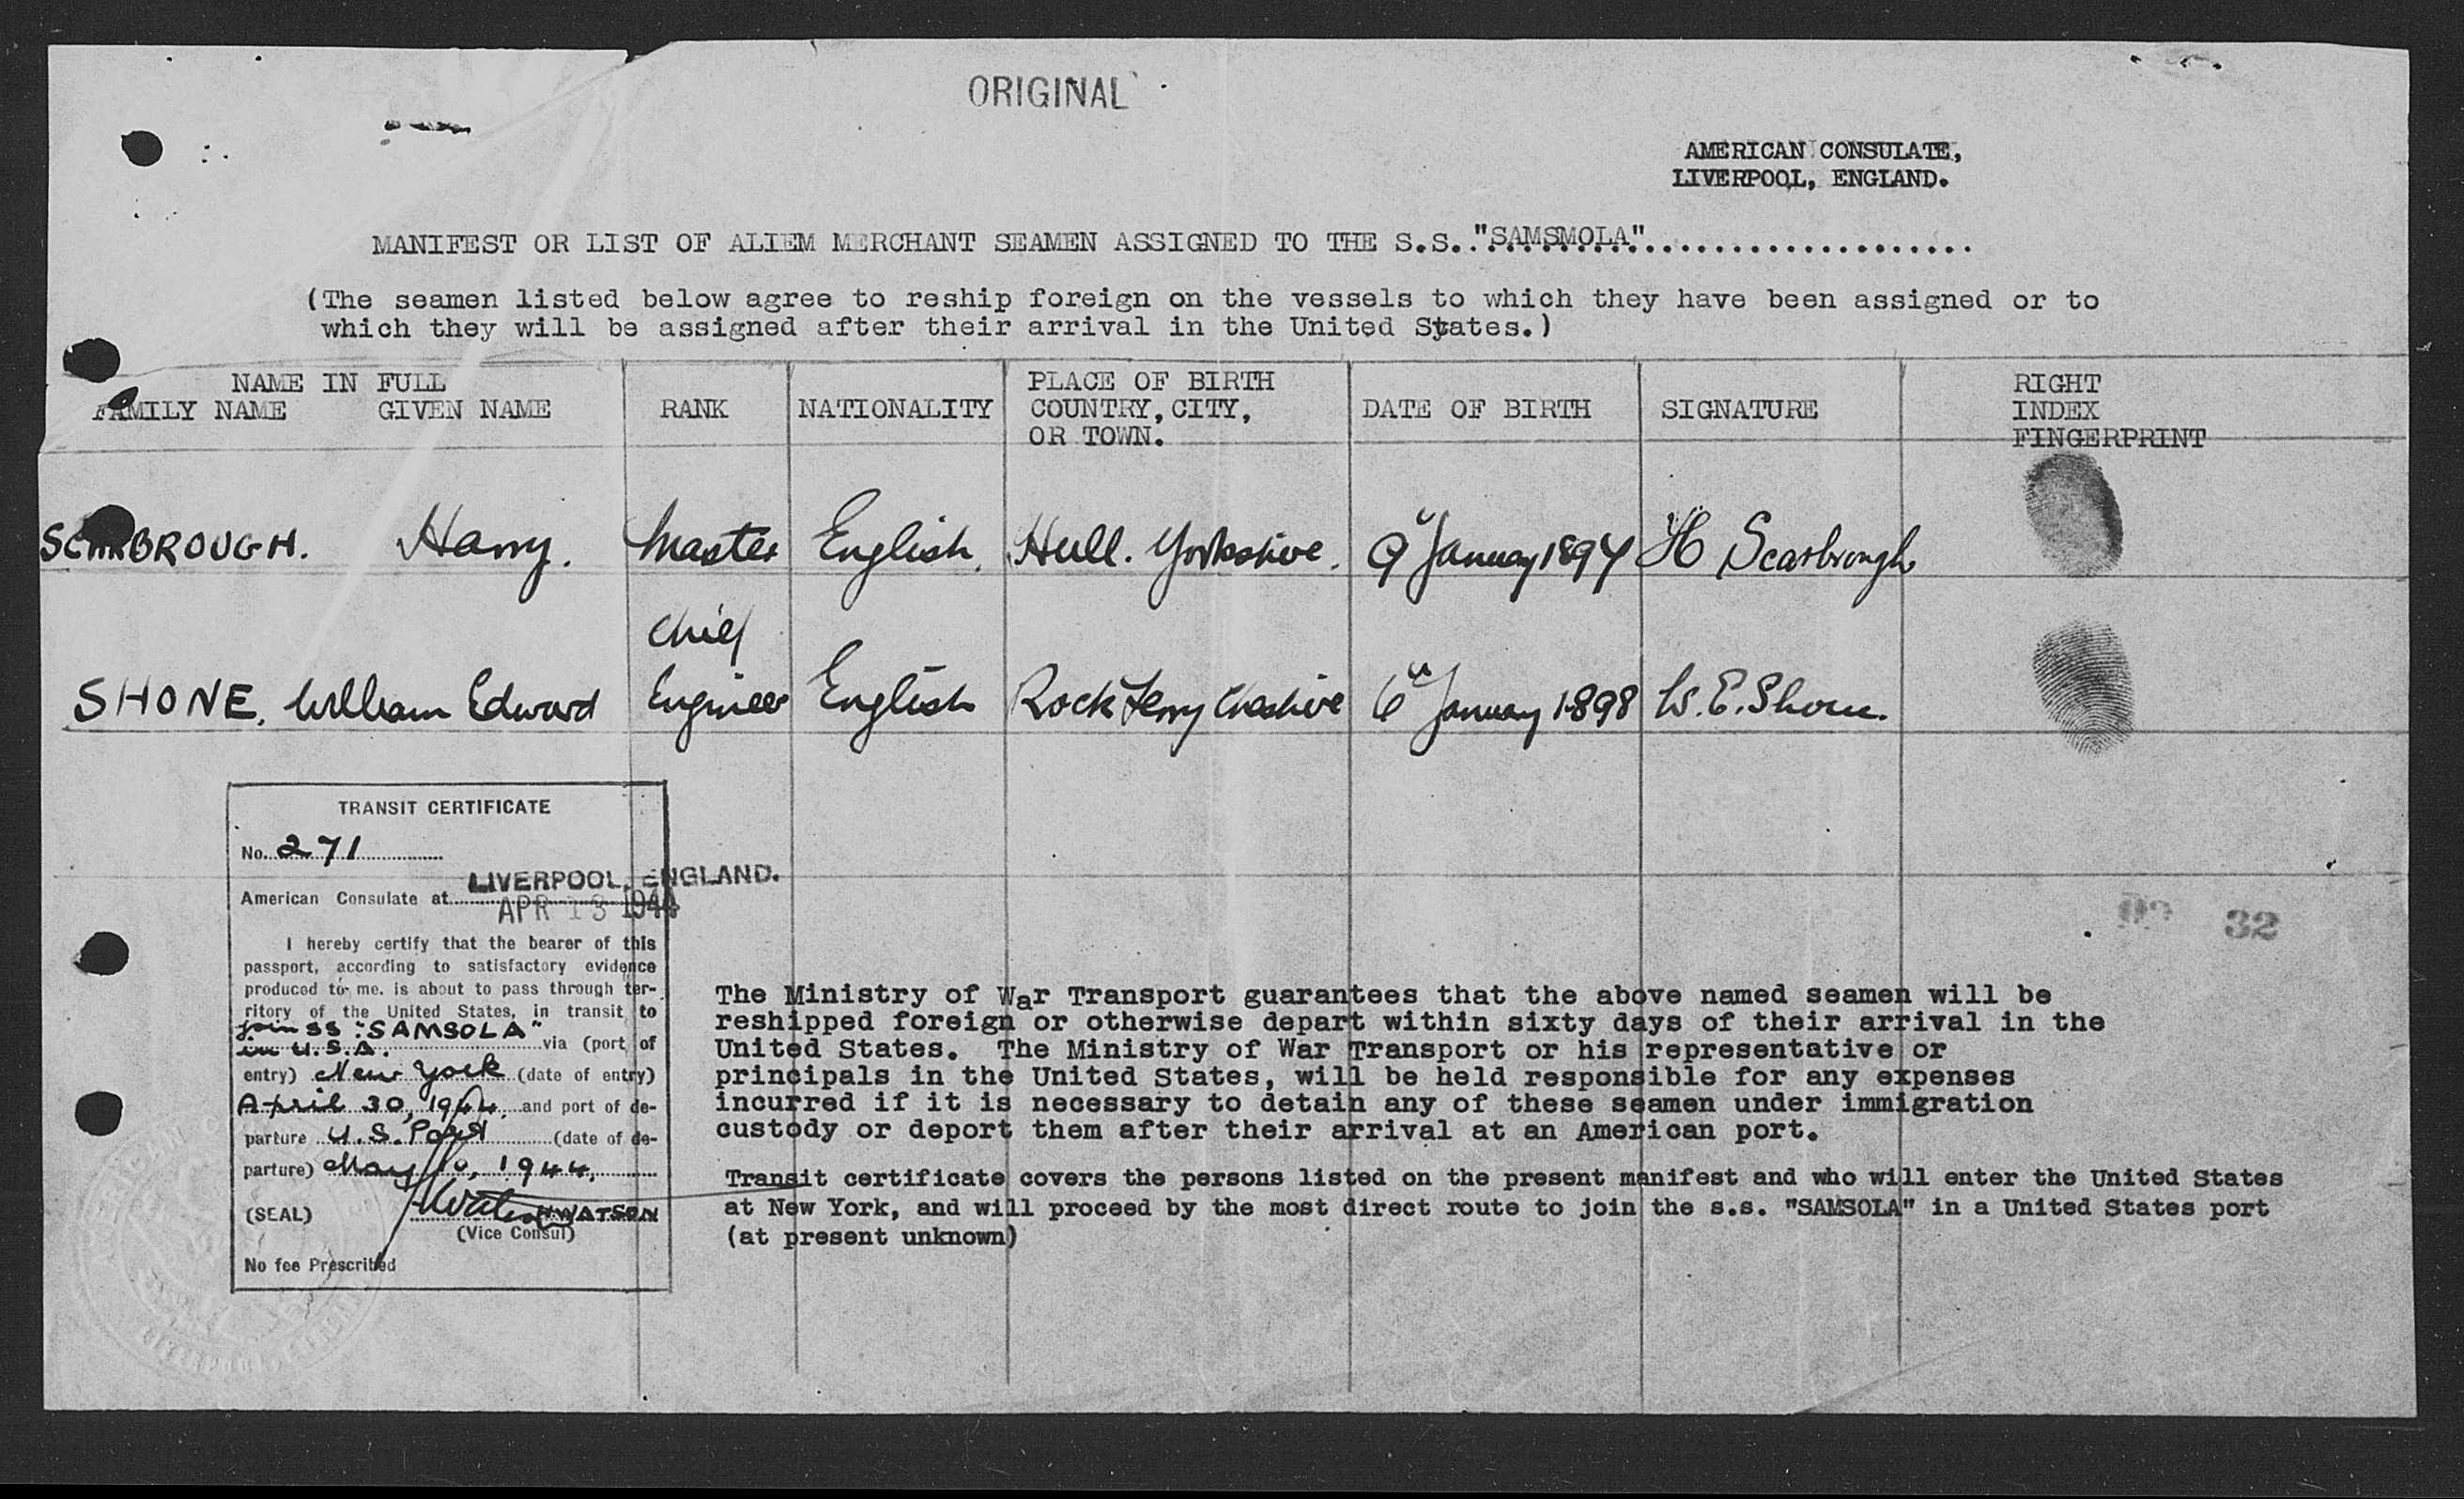 ORIGINAL
AMERICAN CONSULATE,
LIVERPOOL, ENGLAND.
MANIFEST OR LIST OF ALIEM MERCHANT SEAMEN ASSIGNED TO THE S.S. "SAMSMOLA"....................
(The seamen listed below agree to reship foreign on the vessels to which they have been assigned or to
which they will be assigned after their arrival in the United States.)
NAME IN FULL
FAMILY NAME GIVEN NAME
RANK
NATIONALITY
PLACE OF BIRTH
COUNTRY, CITY,
OR TOWN.
DATE OF BIRTH
SIGNATURE
RIGHT
INDEX
FINGERPRINT
SCARBROUGH. Harry. Master English. Hull. Yorkshire. 9th January 1894 H Scarbrough
SHONE, William Edward Chief Engineer English Rock Ferry Cheshire 6th January 1898 W. E. Shone.
TRANSIT CERTIFICATE
No. 271
LIVERPOOL, ENGLAND.
American Consulate at
APR 13 1944
I hereby certify that the bearer of this
passport, according to satisfactory evidence
produced to me. is about to pass through ter-
ritory of the United States, in transit to
join SS "SAMSOLA"
in U.S.A. via (port of
entry) New York (date of entry)
April 30, 1944, and port of de-
parture U.S. Port (date of de-
parture) May 10, 1944,
(SEAL) WATSON
(Vice Consul)
No fee Prescribed
32
The Ministry of War Transport guarantees that the above named seamen will be
reshipped foreign or otherwise depart within sixty days of their arrival in the
United States. The Ministry of War Transport or his representative or
principals in the United States, will be held responsible for any expenses
incurred if it is necessary to detain any of these seamen under immigration
custody or deport them after their arrival at an American port.
Transit certificate covers the persons listed on the present manifest and who will enter the United States
at New York, and will proceed by the most direct route to join the s.s. "SAMSOLA" in a United States port
(at present unknown)